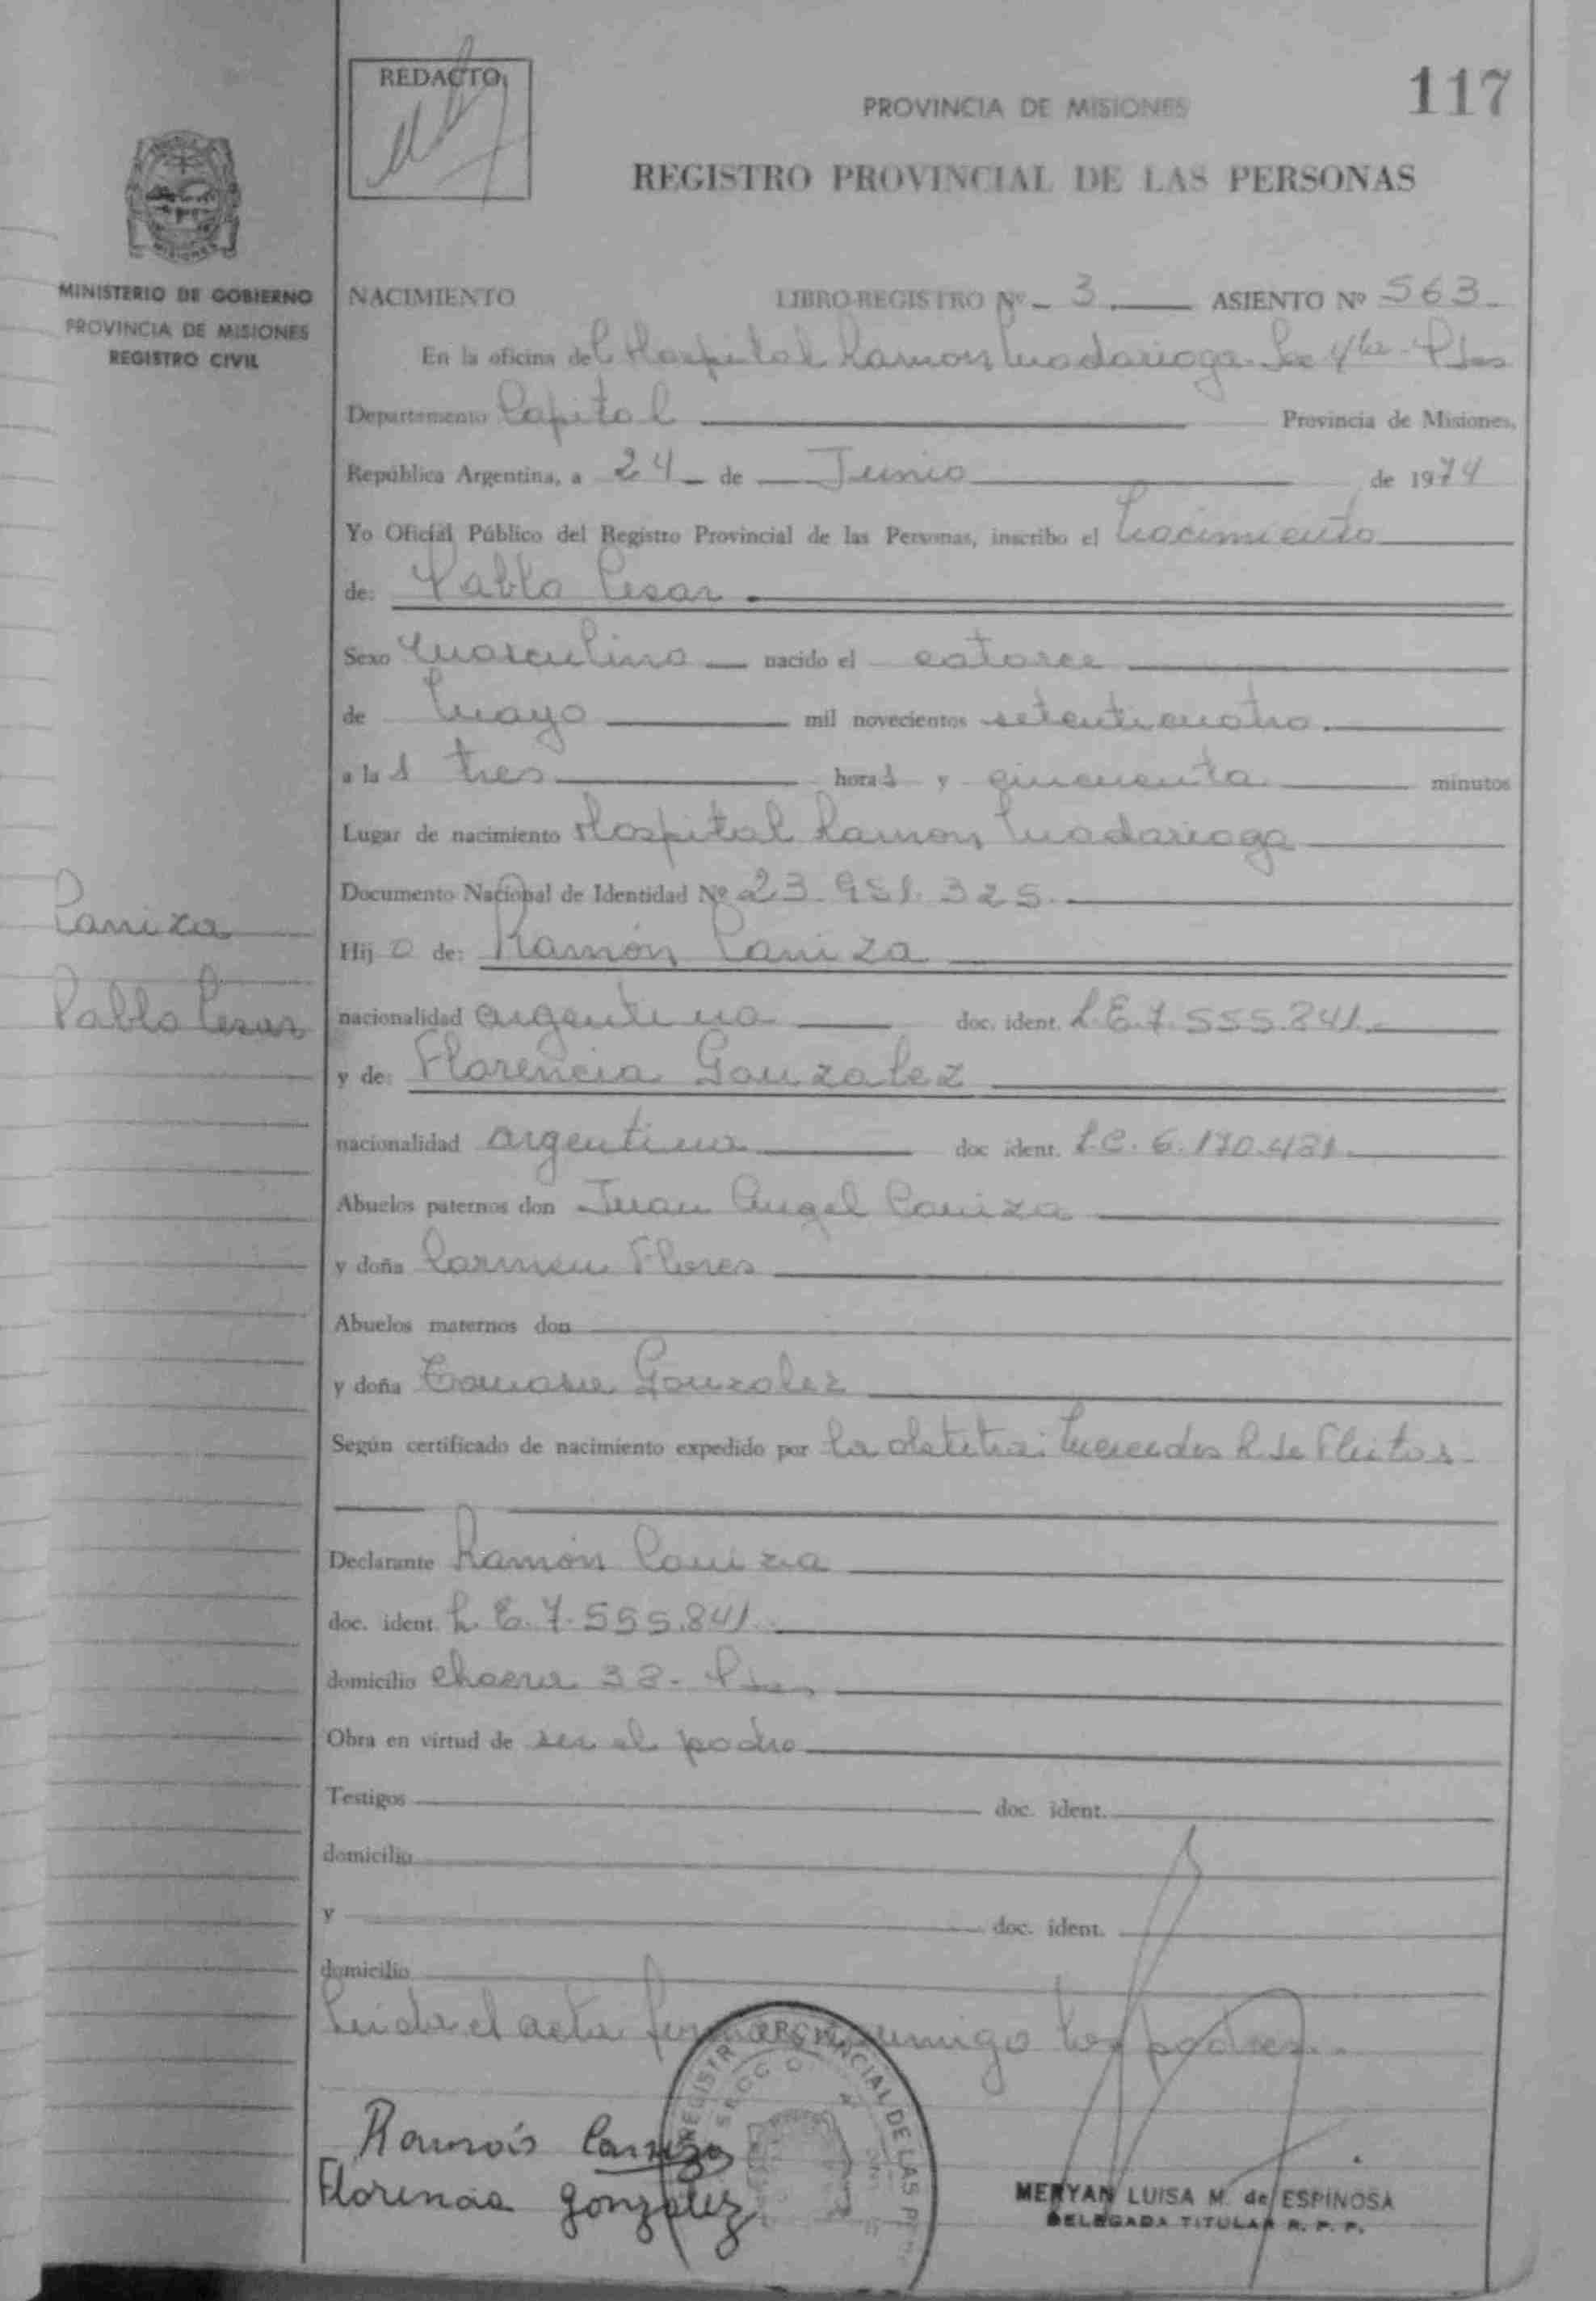 REDACTO
PROVINCIA DE MISIONES
117
REGISTRO PROVINCIAL DE LAS PERSONAS
MISIONES
MINISTERIO DE GOBIERNO
PROVINCIA DE MISIONES
REGISTRO CIVIL
NACIMIENTO LIBRO-REGISTRO Nº 3 ASIENTO Nº 563
En la oficina del Hospital Ramon Madariaga Se 4ta Pdas
Departamento Capital Provincia de Misiones,
República Argentina, a 24 de Junio de 1974
Yo Oficial Público del Registro Provincial de las Personas, inscribo el Nacimiento
de: Pablo Cesar
Sexo Masculino nacido el catorce
de Mayo mil novecientos setenticuatro
a las tres horas y cincuenta minutos
Lugar de nacimiento Hospital Ramon Madariaga
Documento Nacional de Identidad Nº 23.951.325
Caniza
Pablo Cesar
Hijo de: Ramón Caniza
nacionalidad argentina doc. ident. L.E.7.555.841
y de: Florencia Gonzalez
nacionalidad argentina doc. ident. L.C. 6.170.481
Abuelos paternos don Juan Angel Caniza
y doña Carmen Flores
Abuelos maternos don
y doña Tomasa Gonzalez
Según certificado de nacimiento expedido por la obstetra: Mercedes R de Fleitas
Declarante Ramón Caniza
doc. ident. L.E.7.555.841
domicilio chacra 38. Pdas
Obra en virtud de ser el padre
Testigos doc. ident.
domicilio
y doc. ident.
domicilio
Leida el acta firman conmigo los padres
REGISTRO PROVINCIAL DE LAS
Ramón Caniza
Florencia gonzalez
MERYAN LUISA M. de ESPINOSA
DELEGADA TITULAR R. P. P.